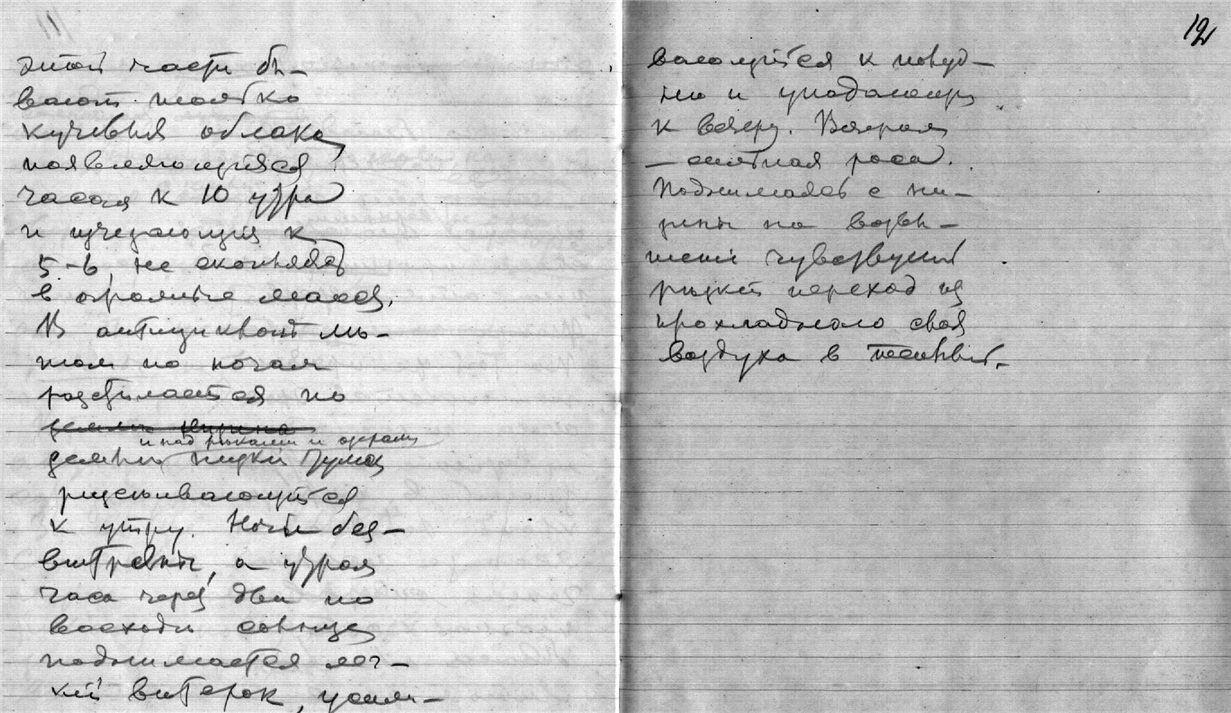 этой части бы-
вают только
кучевыя облака,
появляющияся
часам к 10 утра
и исчезающия к
5-6, не скопляясь
в огромные массы.
В антициклон лѣ-
том по ночам
разстилается по
земли
и над рѣками и озерами
земли низкий туман
разсѣивающийся
к утру. Ночи без-
вѣтрены, а утром
часа через два по
восходѣ солнца
поднимается лег-
кий вѣтерок, усили-
12
вающийся к полуд-
ню и упадающий
к вечеру. Вечерами
– сильная роса.
Поднимаясь с ни-
зины на возвы-
шения чувствуешь
рѣзкий переход из
прохладного слоя
воздуха в теплый.